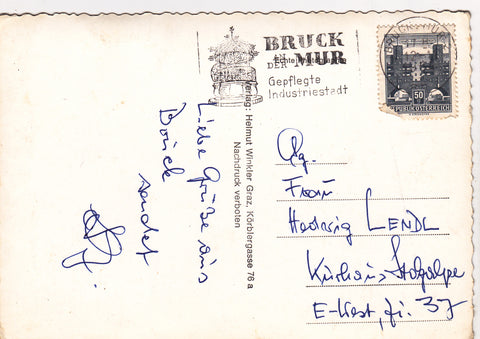 BRUCK
AN DER MUR
Echte Photographie
Gepflegte
Industriestadt
50
REPUBLIK ÖSTERREICH
Verlag: Helmut Winkler Graz, Körblergasse 76 a
Nachdruck verboten
Liebe Grüße aus
Bruck
sendet
Frau
Hedwig LENDL
Kurhaus Stolzalpe
E-West, Zi. 37